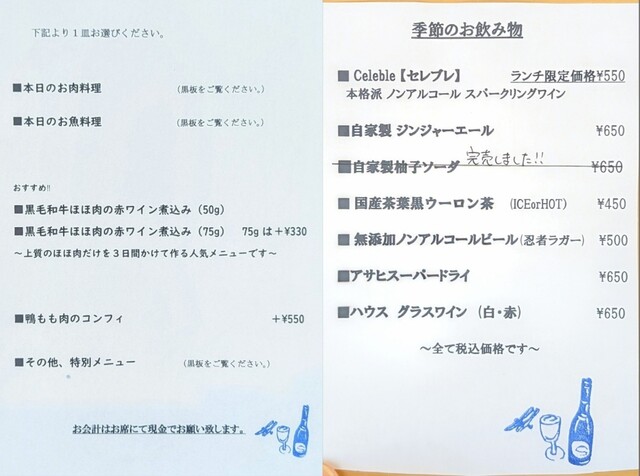 下記より１皿お選びください。
■本日のお肉料理 (黒板をご覧ください。)
■本日のお魚料理 (黒板をご覧ください。)
おすすめ!!
■黒毛和牛ほほ肉の赤ワイン煮込み（50g）
■黒毛和牛ほほ肉の赤ワイン煮込み（75g） 75gは＋¥330
～上質のほほ肉だけを３日間かけて作る人気メニューです～
■鴨もも肉のコンフィ ＋¥550
■その他、特別メニュー (黒板をご覧ください。)
お会計はお席にて現金でお願い致します。
季節のお飲み物
■ Celeble【セレブレ】 ランチ限定価格¥550
本格派 ノンアルコール スパークリングワイン
■自家製 ジンジャーエール ¥650
■自家製柚子ソーダ 完売しました!! ¥650
■ 国産茶葉黒ウーロン茶 (ICEorHOT) ¥450
■ 無添加ノンアルコールビール(忍者ラガー) ¥500
■アサヒスーパードライ ¥650
■ハウス グラスワイン （白・赤） ¥650
～全て税込価格です～